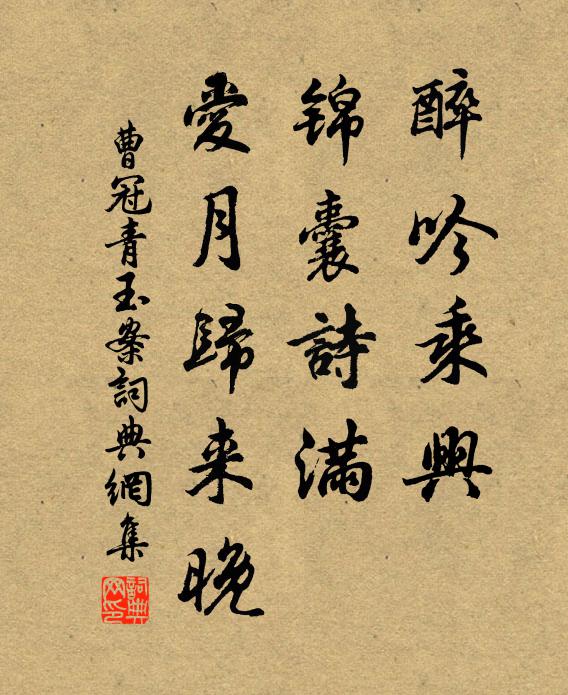 醉吟乘興
锦囊詩满
愛月歸来晚
曹冠青玉案詞典網集
詞典网印